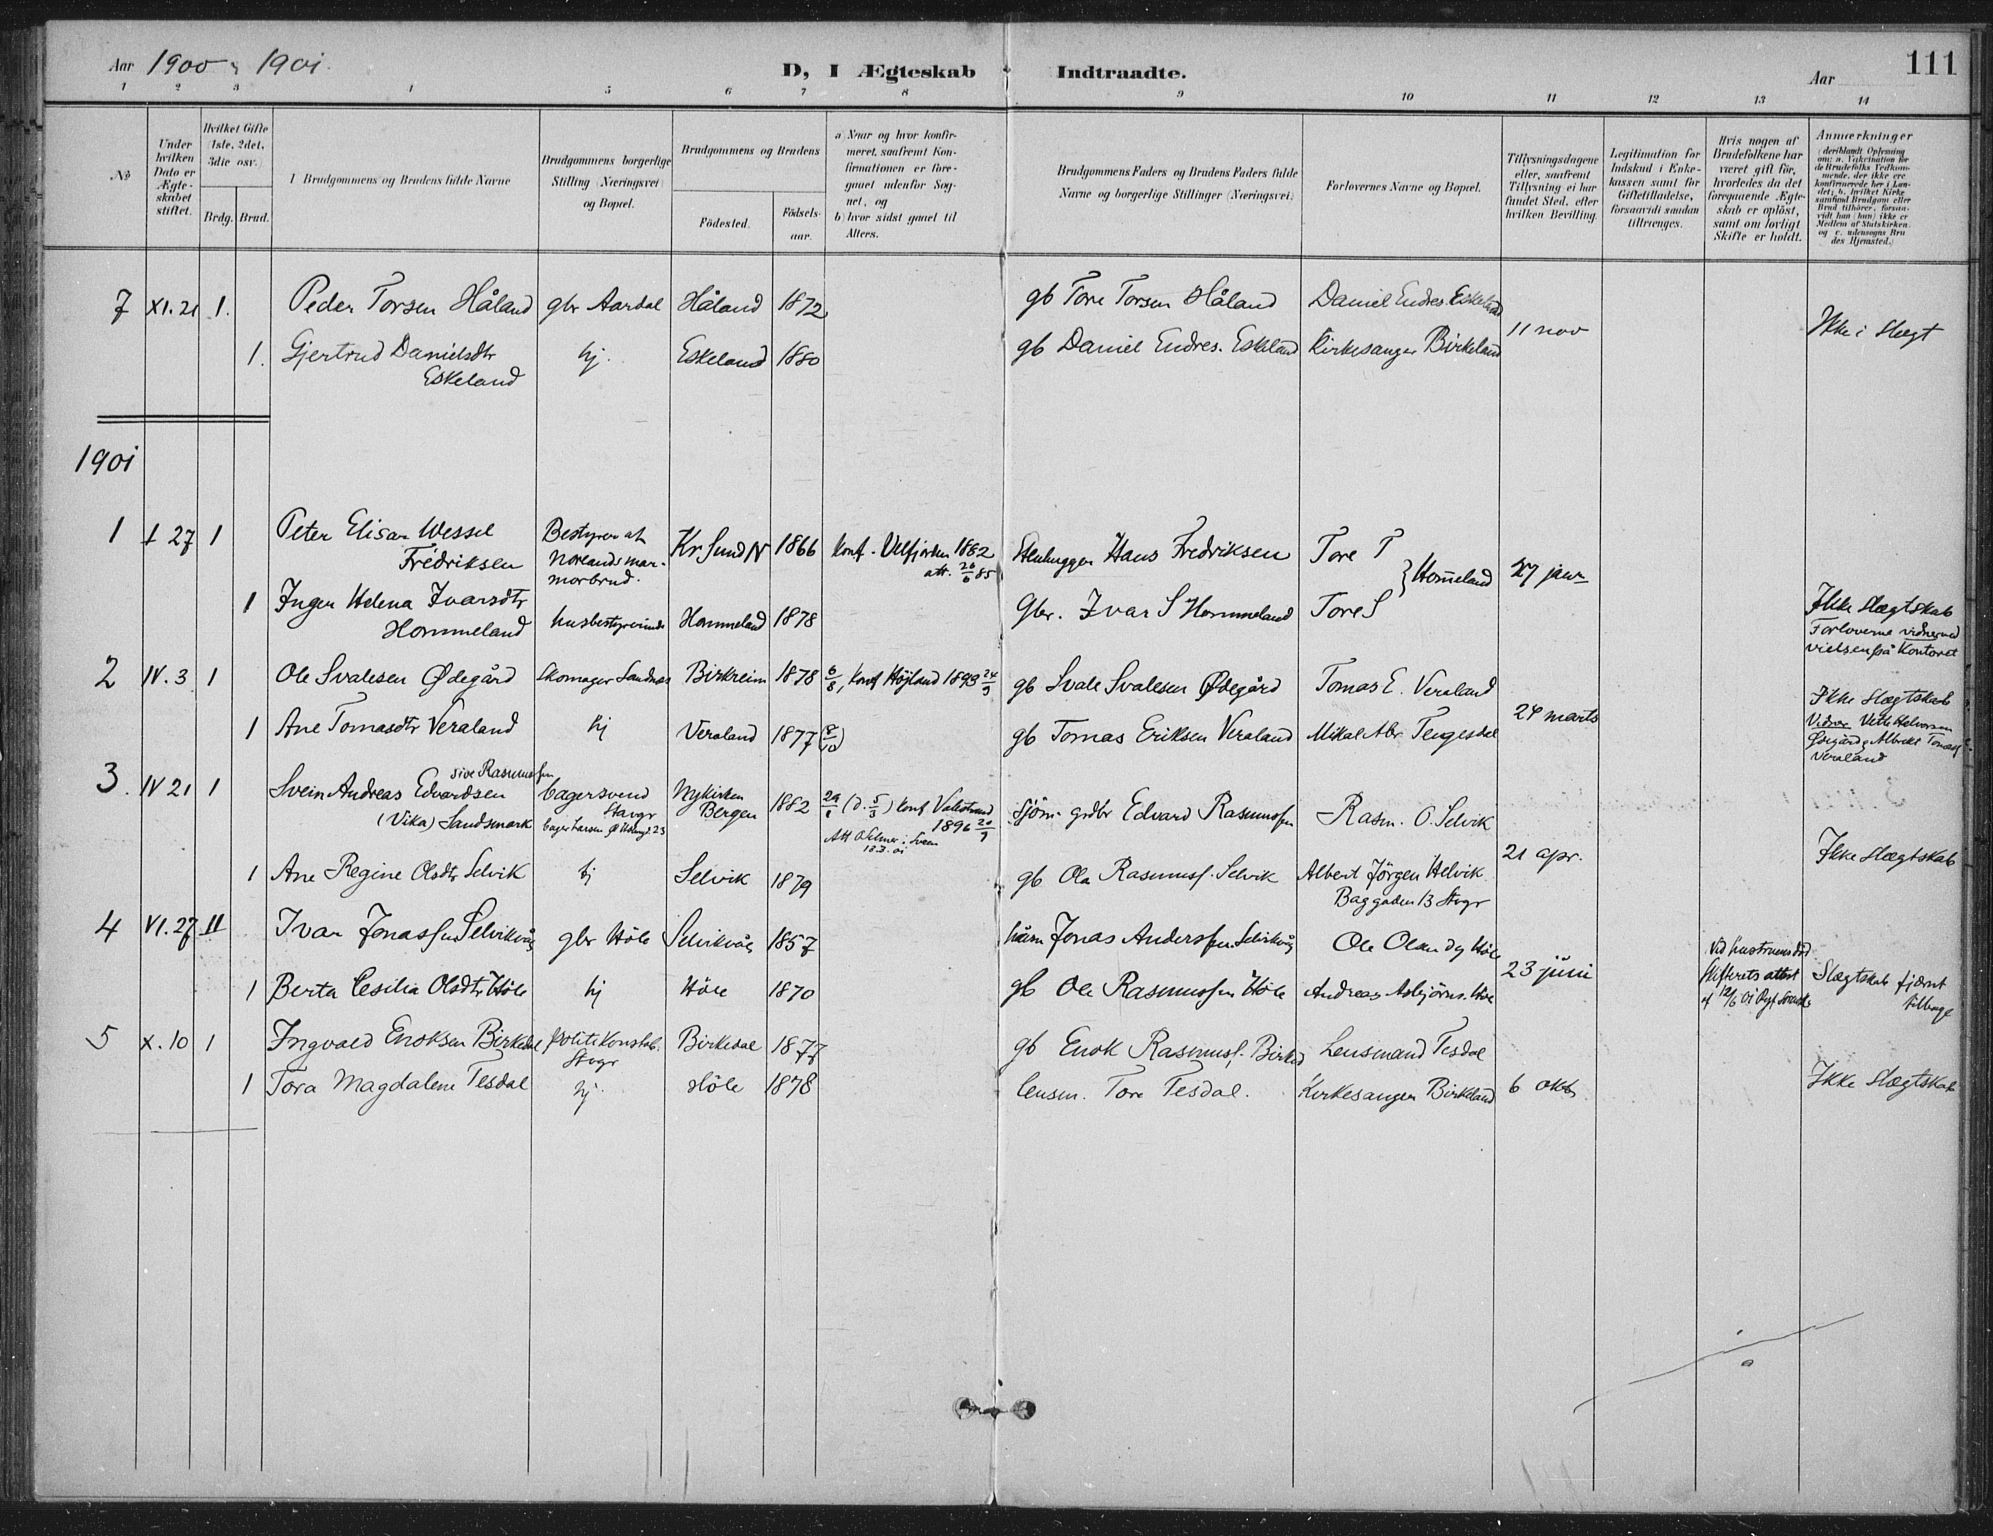 Aar 1900 & 1901.
D, I Ægteskab Indtraadte.
Aar 111
1 2 3 4 5 6 7 8 9 10 11 12 13 14
No
Under hvilken Dato er Ægte-skabet stiftet.
Hvilket Gifte (1ste, 2det, 3die osv.)
Brdg. Brud.
Brudgommens og Brudens fulde Navne
Brudgommens borgerlige Stilling (Næringsvei) og Bopæl.
Brudgommens og Brudens
Födested.
Födsels-aar.
a) Naar og hvor konfir-meret, saafremt Kon-firmationen er fore-gaaet udenfor Sog-net, og
b) hvor sidst gaaet til Alters.
Brudgommens Faders og Brudens Faders fulde Navne og borgerlige Stillinger (Næringsvei)
Forlovernes Navne og Bopæl.
Tillysningsdagene eller, saafremt Tillysning ei har fundet Sted, efter hvilken Bevilling.
Legitimation for Indskud i Enke-kassen samt for Giftetilladelse, forsaavidt saadan tiltrænges.
Hvis nogen af Brudefolkene har været gift för, hvorledes da det foregaaende Ægte-skab er oplöst, samt om lovligt Skifte er holdt.
Anmærkninger (deriblandt Oplysning om: a. Vakcination for de Brudefolks Vedkom-mende, der ikke ere konfirmerede her i Lan-det; b. hvilket Kirke-samfund Brudgom eller Brud tilhörer, forsaa-vidt han (hun) ikke er Medlem af Statskirken, og c. udensogns Bru-des Hjemsted.)
7 XI. 21 1. Peder Torsen Håland gbr Aardal Håland 1872 gb Tore Torsen Håland Daniel Endres. Eskeland
11 nov Ikke i Slegt
1. Gjertrud Danielsdtr hj. Eskeland 1880 gb Daniel Endres. Eskeland Kirkesanger Birkeland
Eskeland
1901
1 I 27 1 Peter Elisar Wessel Fredriksen Bestyrer at Norlands mar-morbrud. Kr. Sund N 1866 konf. Velfjorden 1882 att. 26/6 85 Stenhugger Hans Fredriksen Tore T
} Hom̅eland 27 jan
1 Inger Helena Ivarsdtr Hommeland husbestyrerinde Hommeland 1878 Gbr. Ivar S Hommeland Tore S
Ikke Slægtskab
Forloverne vidner ved
vielsen på Kontoret
2 IV. 3 1 Ole Svalesen Ødegård Skomager Sandnes Birkreim 1878 6/8, konf Högland 1893 24/9 gb Svale Svalesen Ødegård Tomas E. Veraland
24 marts Ikke Slægtskab
1 Ane Tomasdtr Veraland hj Veraland 1877 (8/10) gb Tomas Eriksen Veraland Mikal Abr Tengesdal
Vidner
Ødegård & Albrekt Tomass
Veraland
3. IV 21 1 Svein Andreas Edvardsen sive Rasmussen (Vika) Sandsmark bagersvend Stavgr bager Larsen Nykirken Bergen 1882 29/1 (d. 5/3) konf Valestrand 1896 20/9 Sjöm. grdbr Edvard Rasmussen Rasm. O. Selvik
21 apr. Ikke Slægtskab
1 Ane Regine Olsdtr Selvik hj Selvik 1879 gb Ola Rasmuss. Selvik Albert Jörgen Helvik
Baggaden 13 Stvgr
4 VI. 27 II Ivar Jonassen Selvikvåg gbr Höle Selvikvåg 1857 Jonas Anderssen Selvikvåg Ole Olsen dy Höle
23 juni Ved hustruens död
Skifterets attest
af 12/6 01
Slægtskab fjærnt
1 Berta Cesilia Olsdtr Höle hj Höle 1870 gb Ole Rasmussen Höle Andreas Asbjörns. Höle
5 X. 10 1 Ingvald Enoksen Birkedal Politikonstab. Stvgr Birkedal 1877 gb Enok Rasmuss. Birkedal Lensmand Tesdal
6 oktb Ikke Slægtskab
1 Tora Magdalene Tesdal hj. Höle 1878 lensm. Tore Tesdal. Kirkesanger Birkeland